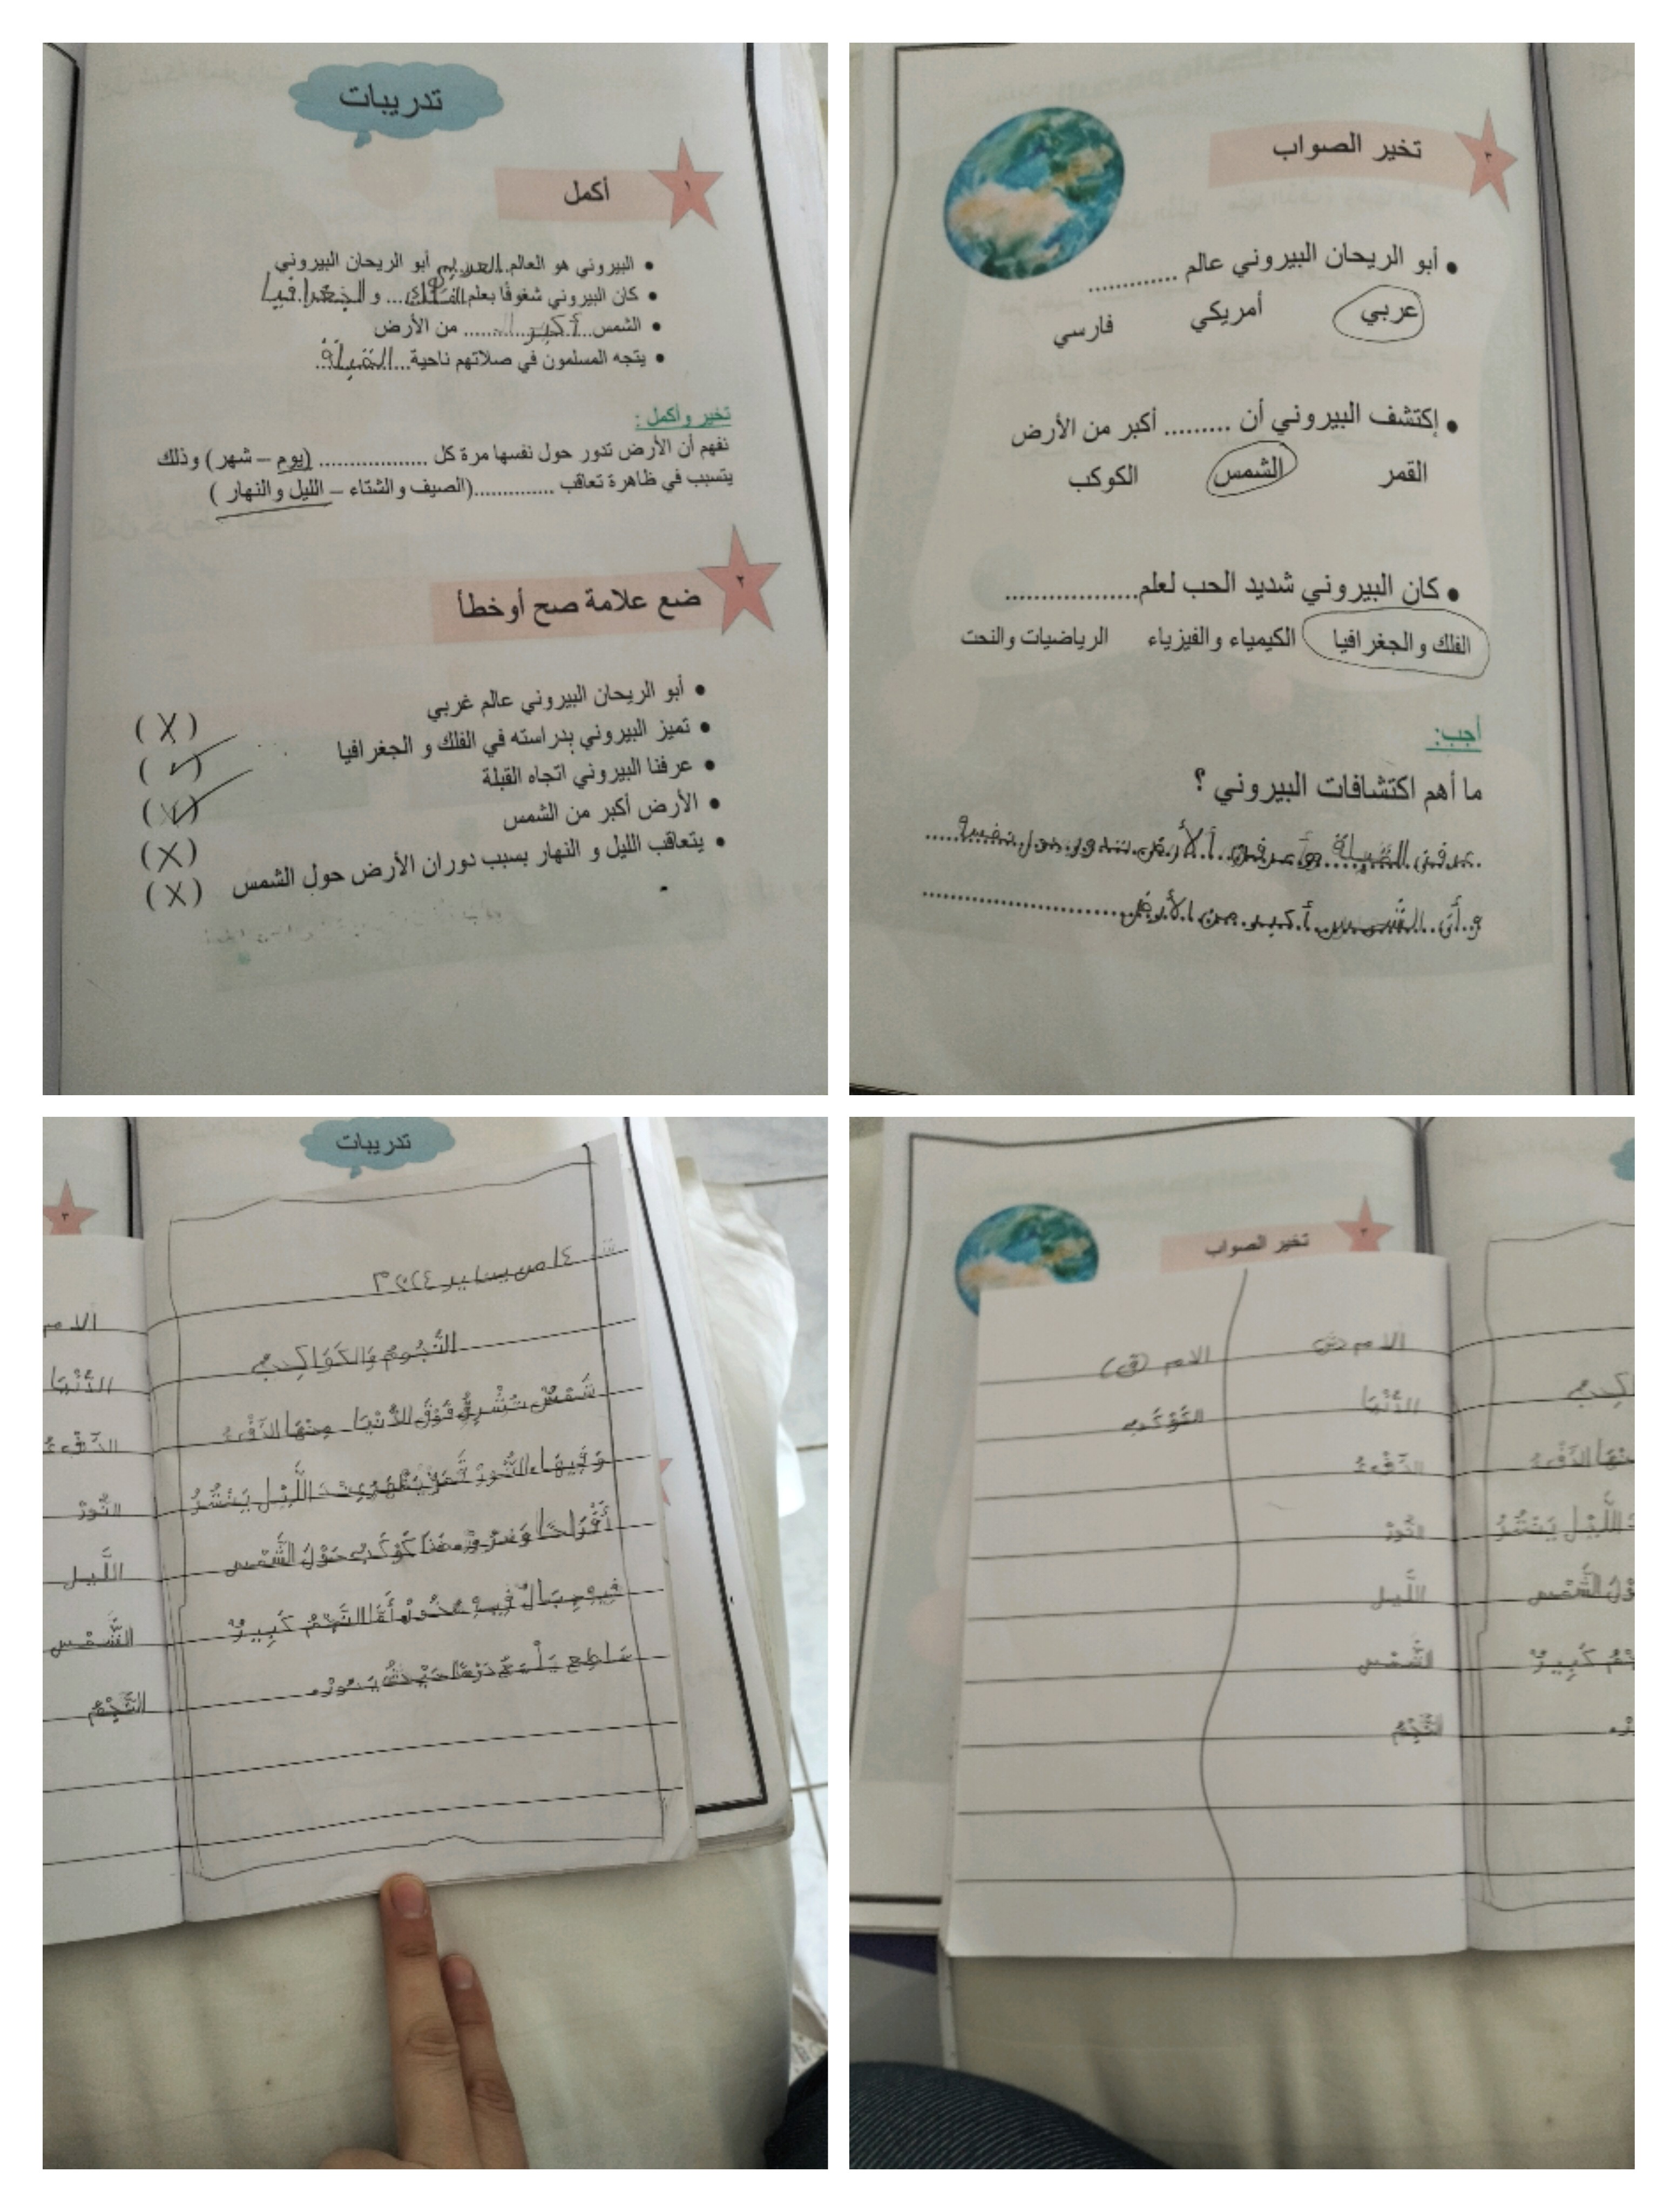 تدريبات
١
أكمل
• البيروني هو العالم..العربي أبو الريحان البيروني
• كان البيروني شغوفًا بعلم الفلك... و الجغرافيا
• الشمس...أكبر......... من الأرض
• يتجه المسلمون في صلاتهم ناحية...القبلة
تخير وأكمل :
نفهم أن الأرض تدور حول نفسها مرة كل .................. (يوم – شهر) وذلك
يتسبب في ظاهرة تعاقب .............(الصيف والشتاء – الليل والنهار )
٢
ضع علامة صح أوخطأ
• أبو الريحان البيروني عالم غربي (X)
• تميز البيروني بدراسته في الفلك و الجغرافيا (✓)
• عرفنا البيروني اتجاه القبلة (✓)
• الأرض أكبر من الشمس (X)
• يتعاقب الليل و النهار بسبب دوران الأرض حول الشمس (X)
٣
تخير الصواب
• أبو الريحان البيروني عالم .............
عربي أمريكي فارسي
• إكتشف البيروني أن ......... أكبر من الأرض
القمر الشمس الكوكب
• كان البيروني شديد الحب لعلم..................
الفلك والجغرافيا الكيمياء والفيزياء الرياضيات والنحت
أجب:
ما أهم اكتشافات البيروني ؟
القبلة الأرض تدور حول نفسه
و أن الشمس أكبر من الأرض
تدريبات
٣
النُّجُوم وَالكَوَاكِب
شَمْسٌ تُشْرِقُ فَوْقَ الدُّنْيَا مِنْهَا الدِّفْءُ
وَفِيهَا النُّورْ اللَّيْل يَنْشُرُ
أَفْرَاحًا كَوْكَب حَوْلَ الشَّمْس
جِبَال فِيهِ أَمَّا النَّجْمُ كَبِيرٌ
سَاطِع
الام
الدُّنْيَا
الدِّفْءُ
النُّورْ
اللَّيل
الشَّمْس
النَّجْمُ
٣
تخير الصواب
الام (ش) الام (ق)
الدُّنْيَا الكَوْكَب
الدِّفْءُ
النُّورْ
اللَّيل
الشَّمْس
النَّجْمُ